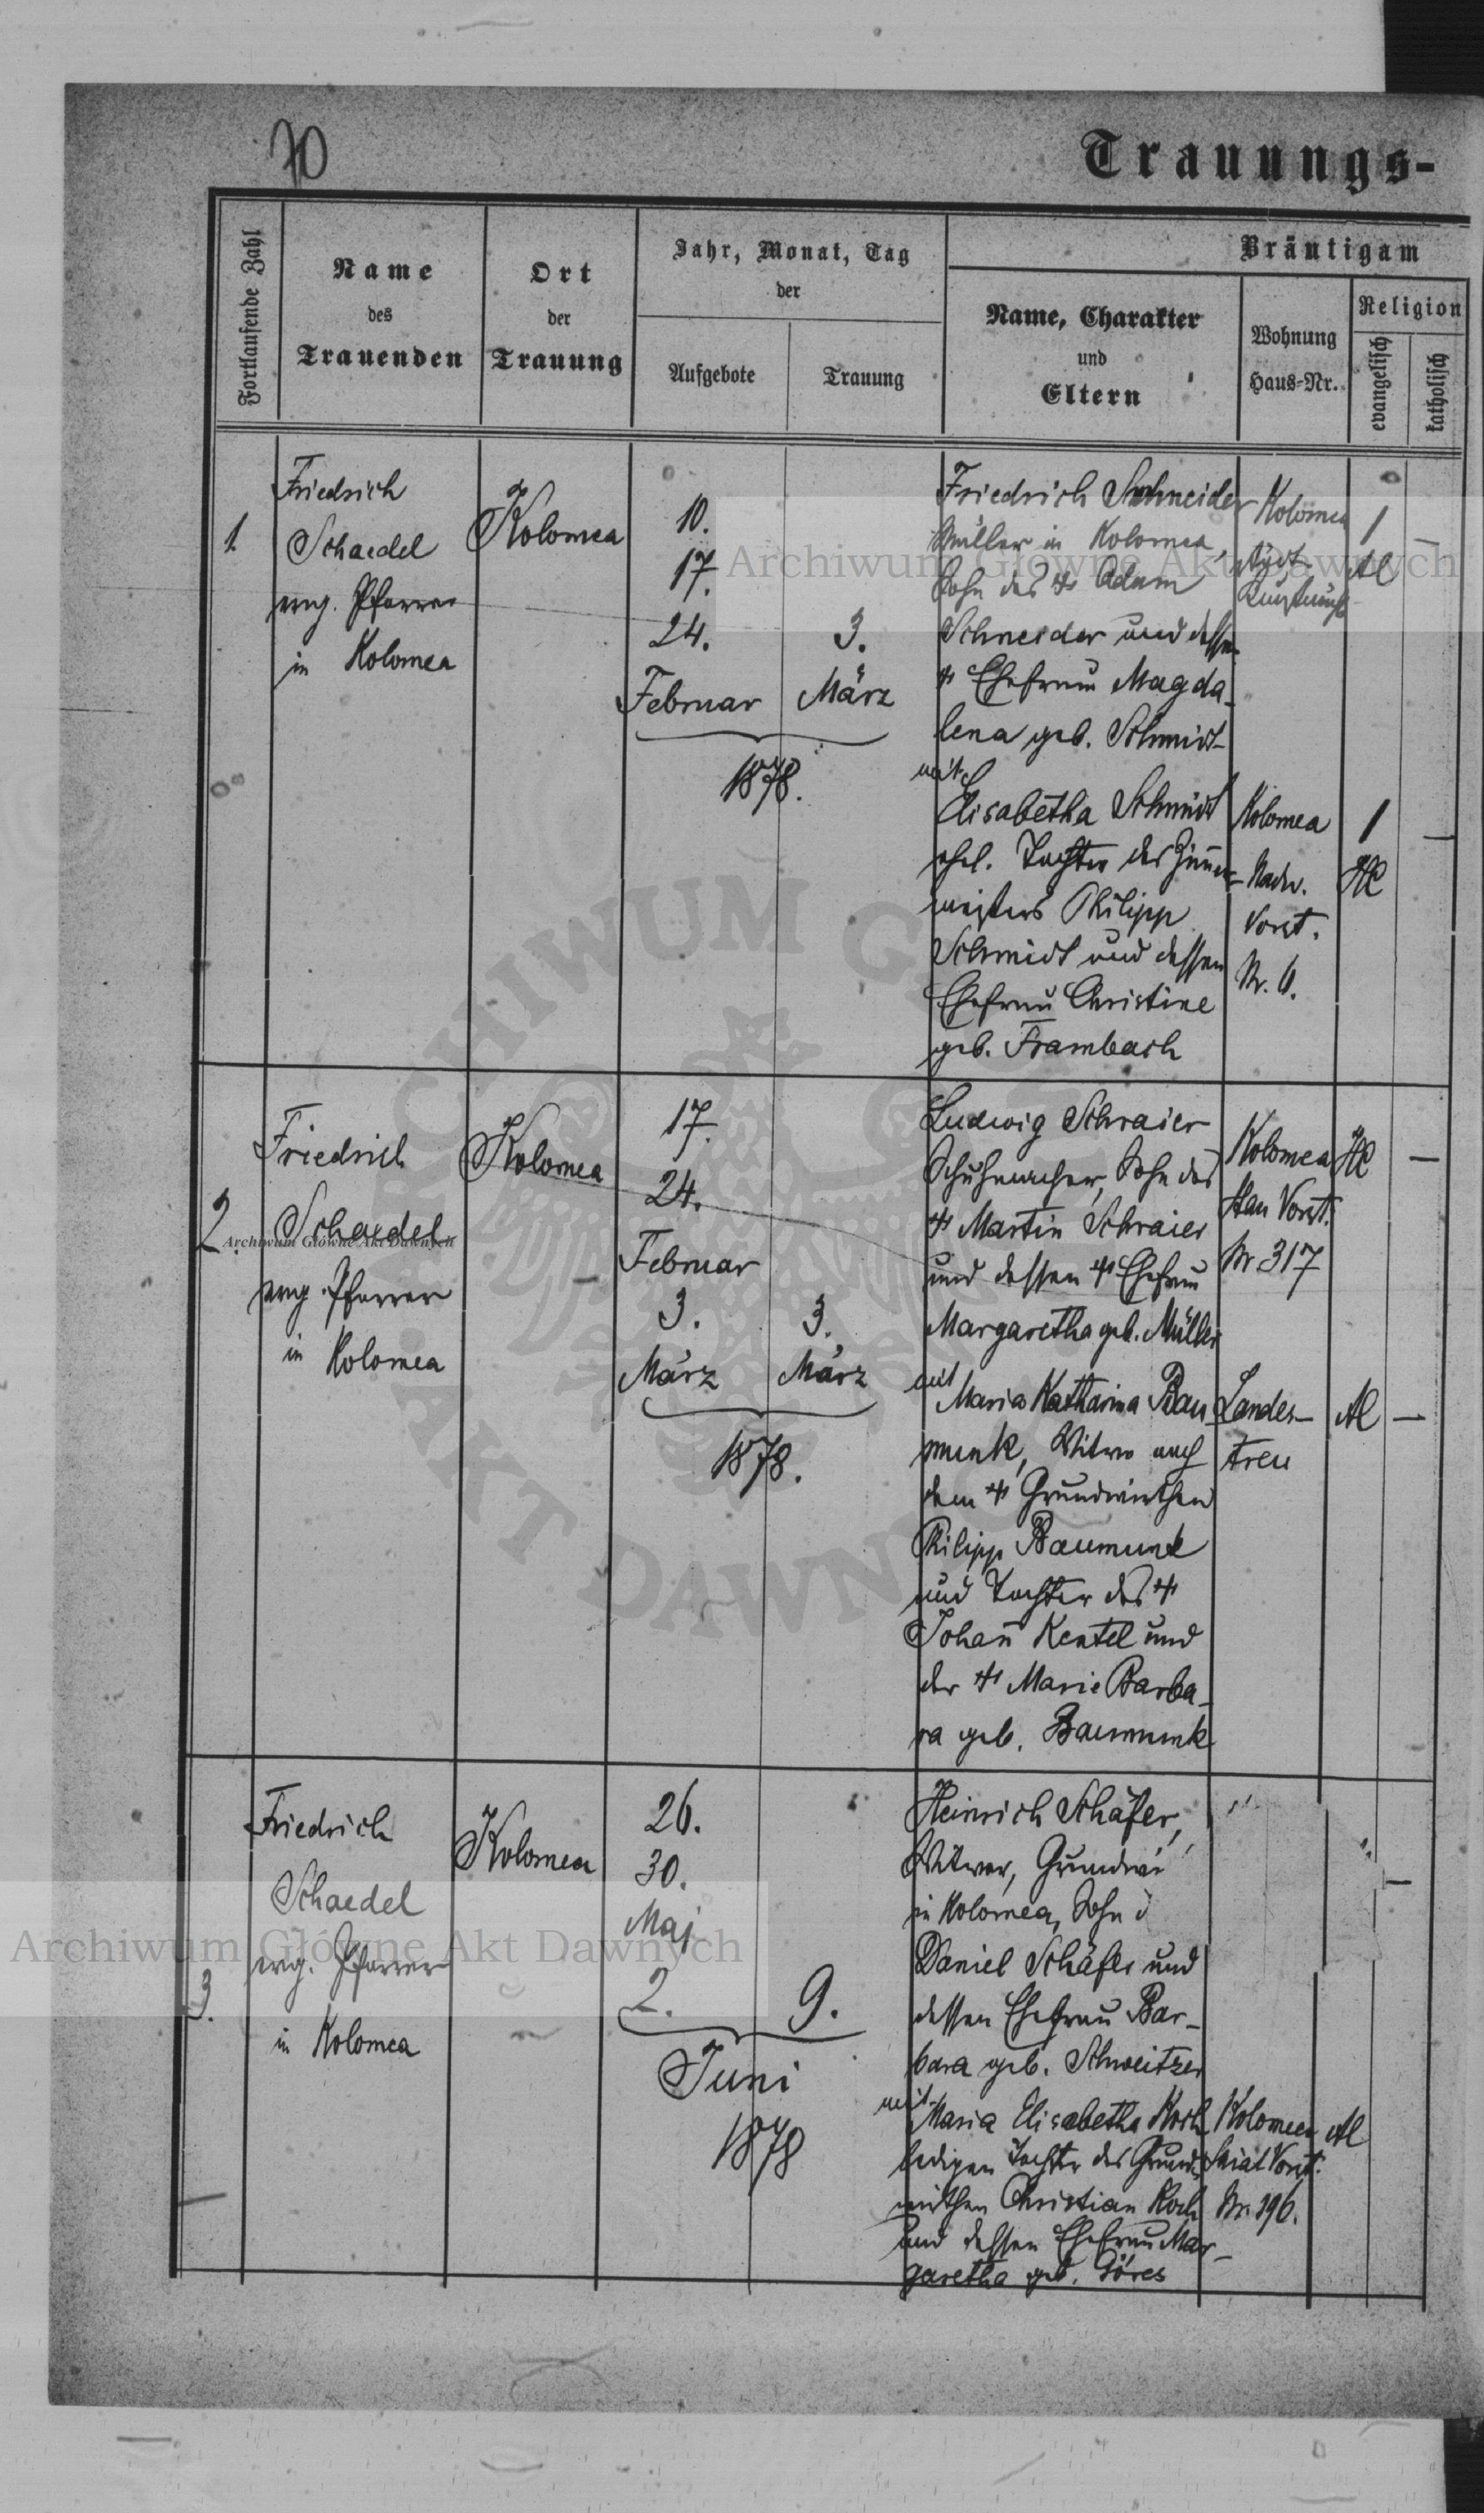 70
Trauungs-
Fortlaufende Zahl
Name
des
Trauenden
Ort
der
Trauung
Jahr, Monat, Tag
der
Aufgebote
Trauung
Bräutigam
Name, Charakter
und
Eltern
Wohnung
Haus-Nr.
Religion
evangelisch
katholisch
1.
Friedrich
Schaedel
evg. Pfarrer
in Kolomea
Kolomea
10.
17.
24.
Februar
3.
März
1878.
Friedrich Schneider
Müller in Kolomea,
Sohn des Adam
Schneider und dessen
Ehefrau Magda-
lena geb. Schmidt
mit
Elisabetha Schmidt
ehel. Tochter des Zimmer-
meisters Philipp
Schmidt und dessen
Ehefrau Christine
geb. Frambach
Kolomea
1
AC
—
Kolomea
Nadw.
Vorst.
Nr. 6.
1
HC
—
2.
Friedrich
Schaedel
evg. Pfarrer
in Kolomea
Kolomea
17.
24.
Februar
3.
März
3.
März
1878.
Ludwig Schraier
Schuhmacher, Sohn des
Martin Schraier
und dessen Ehefrau
Margaretha geb. Müller
mit
Maria Katharina Bau
munk, Witwe nach
dem Grundwirthen
Philipp Baumunk
und Tochter des
Johañ Kentel und
der Marie Barba-
ra geb. Baumunk
Kolomea
Vorst.
Nr 317
HC
—
Landes-
treu
AC
—
3.
Friedrich
Schaedel
evg. Pfarrer
in Kolomea
Kolomea
26.
30.
Maj
2.
9.
Juni
1878
Heinrich Schäfer,
Witwer,
in Kolomea, Sohn d
Daniel Schäfer und
dessen Ehefrau Bar-
bara geb. Schweitzer
mit
Maria Elisabetha Koch
ledigen Tochter des Grund-
wirthen Christian Koch
und dessen Ehefrau Mar-
garetha geb. Göres
—
Kolomea
Vorst.
Nr. 396.
AC
Archiwum Główne Akt Dawnych
Archiwum Główne Akt Dawnych
Archiwum Główne Akt Dawnych